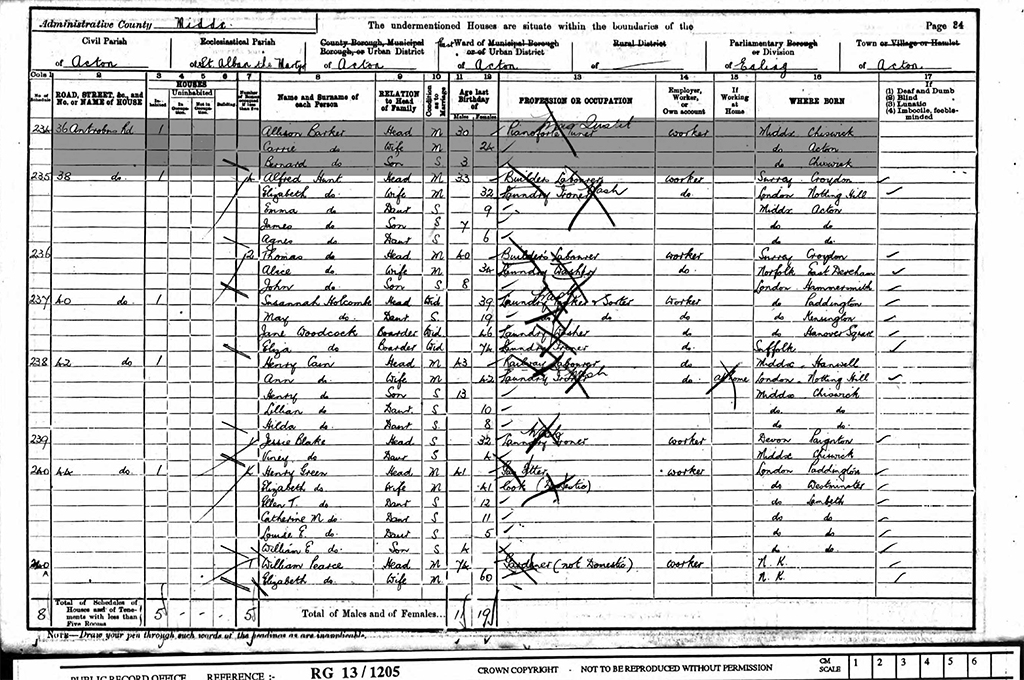 Administrative County Middx. The undermentioned Houses are situate within the boundaries of the Page 24
Civil Parish Ecclesiastical Parish County Borough, Municipal Borough, or Urban District East Ward of Municipal Borough or of Urban District Rural District Parliamentary Borough or Division Town or Village or Hamlet
of Acton of St. Alban the Martyr of Acton of Acton of of Ealing of Acton
Cols 1 2 3 4 5 6 7 8 9 10 11 12 13 14 15 16 17
No. of Schedule ROAD, STREET, &c., and No. or NAME of HOUSE HOUSES Inhabited Uninhabited In Occupation Not in Occupation Building Name and Surname of each Person RELATION to Head of Family Condition as to Marriage Age last Birthday of Males Females PROFESSION OR OCCUPATION Employer, Worker, or Own account If Working at Home WHERE BORN If (1) Deaf and Dumb (2) Blind (3) Lunatic (4) Imbecile, feeble-minded
234 36 Antrobus Rd 1 Allison Barker Head M 30 Pianoforte Tuner worker Middx Chiswick
Carrie do Wife M 24 do Acton
Bernard do Son S 3 do Chiswick
235 38 do 1 4 Alfred Hunt Head M 33 Builders Labourer worker Surrey Croydon
Elizabeth do Wife M 32 Laundry Ironer Wash do. London Notting Hill
Emma do Daur S 9 Middx Acton
James do Son S 7 do do
Agnes do Daur S 6 do do
236 2 Thomas do Head M 40 Builders Labourer worker Surrey Croydon
Alice do Wife M 34 Laundry do. Norfolk East Dereham
John do Son S 8 London Hammersmith
237 40 do 1 Susannah Holcombe Head Wid 39 Laundry Packer & Sorter Worker do Paddington
May do Daur S 19 do do do do Kensington
Jane Woodcock Boarder Wid 46 Laundry Washer do do Hanover Square
Eliza do Boarder Wid 74 Laundry Ironer do. Suffolk
238 42 do 1 Henry Cain Head M 43 Railway Labourer do Middx Hanwell
Ann do Wife M 42 Laundry Ironer Wash do At home London Notting Hill
Henry do Son S 13 Middx Chiswick
Lillian do Daur S 10 do. do
Hilda do Daur S 8 do do
239 Jessie Blake Head S 32 Laundry Ironer worker Devon Paignton
Viney do Daur S 4 Middx Chiswick
240 44 do 1 Henry Green Head M 41 Gas Fitter worker London Paddington
Elizabeth do Wife M 41 Cook (Domestic) do Westminster
Ellen T. do Daur S 12 do Lambeth
Catherine M do. Daur S 11 do do
Louise E. do Daur S 5 do do
William E do Son S 4 do do
240 A 1 William Pearce Head M 74 Gardener (not Domestic) worker N. K.
Elizabeth do Wife M 60 N. K.
8 Total of Schedules of Houses and of Tenements with less than Five Rooms 5 - - 5 Total of Males and of Females... 11 19
NOTE—Draw your pen through such words of the headings as are inapplicable.
PUBLIC RECORD OFFICE REFERENCE :- RG 13/1205 CROWN COPYRIGHT - NOT TO BE REPRODUCED WITHOUT PERMISSION CM SCALE 1 2 3 4 5 6